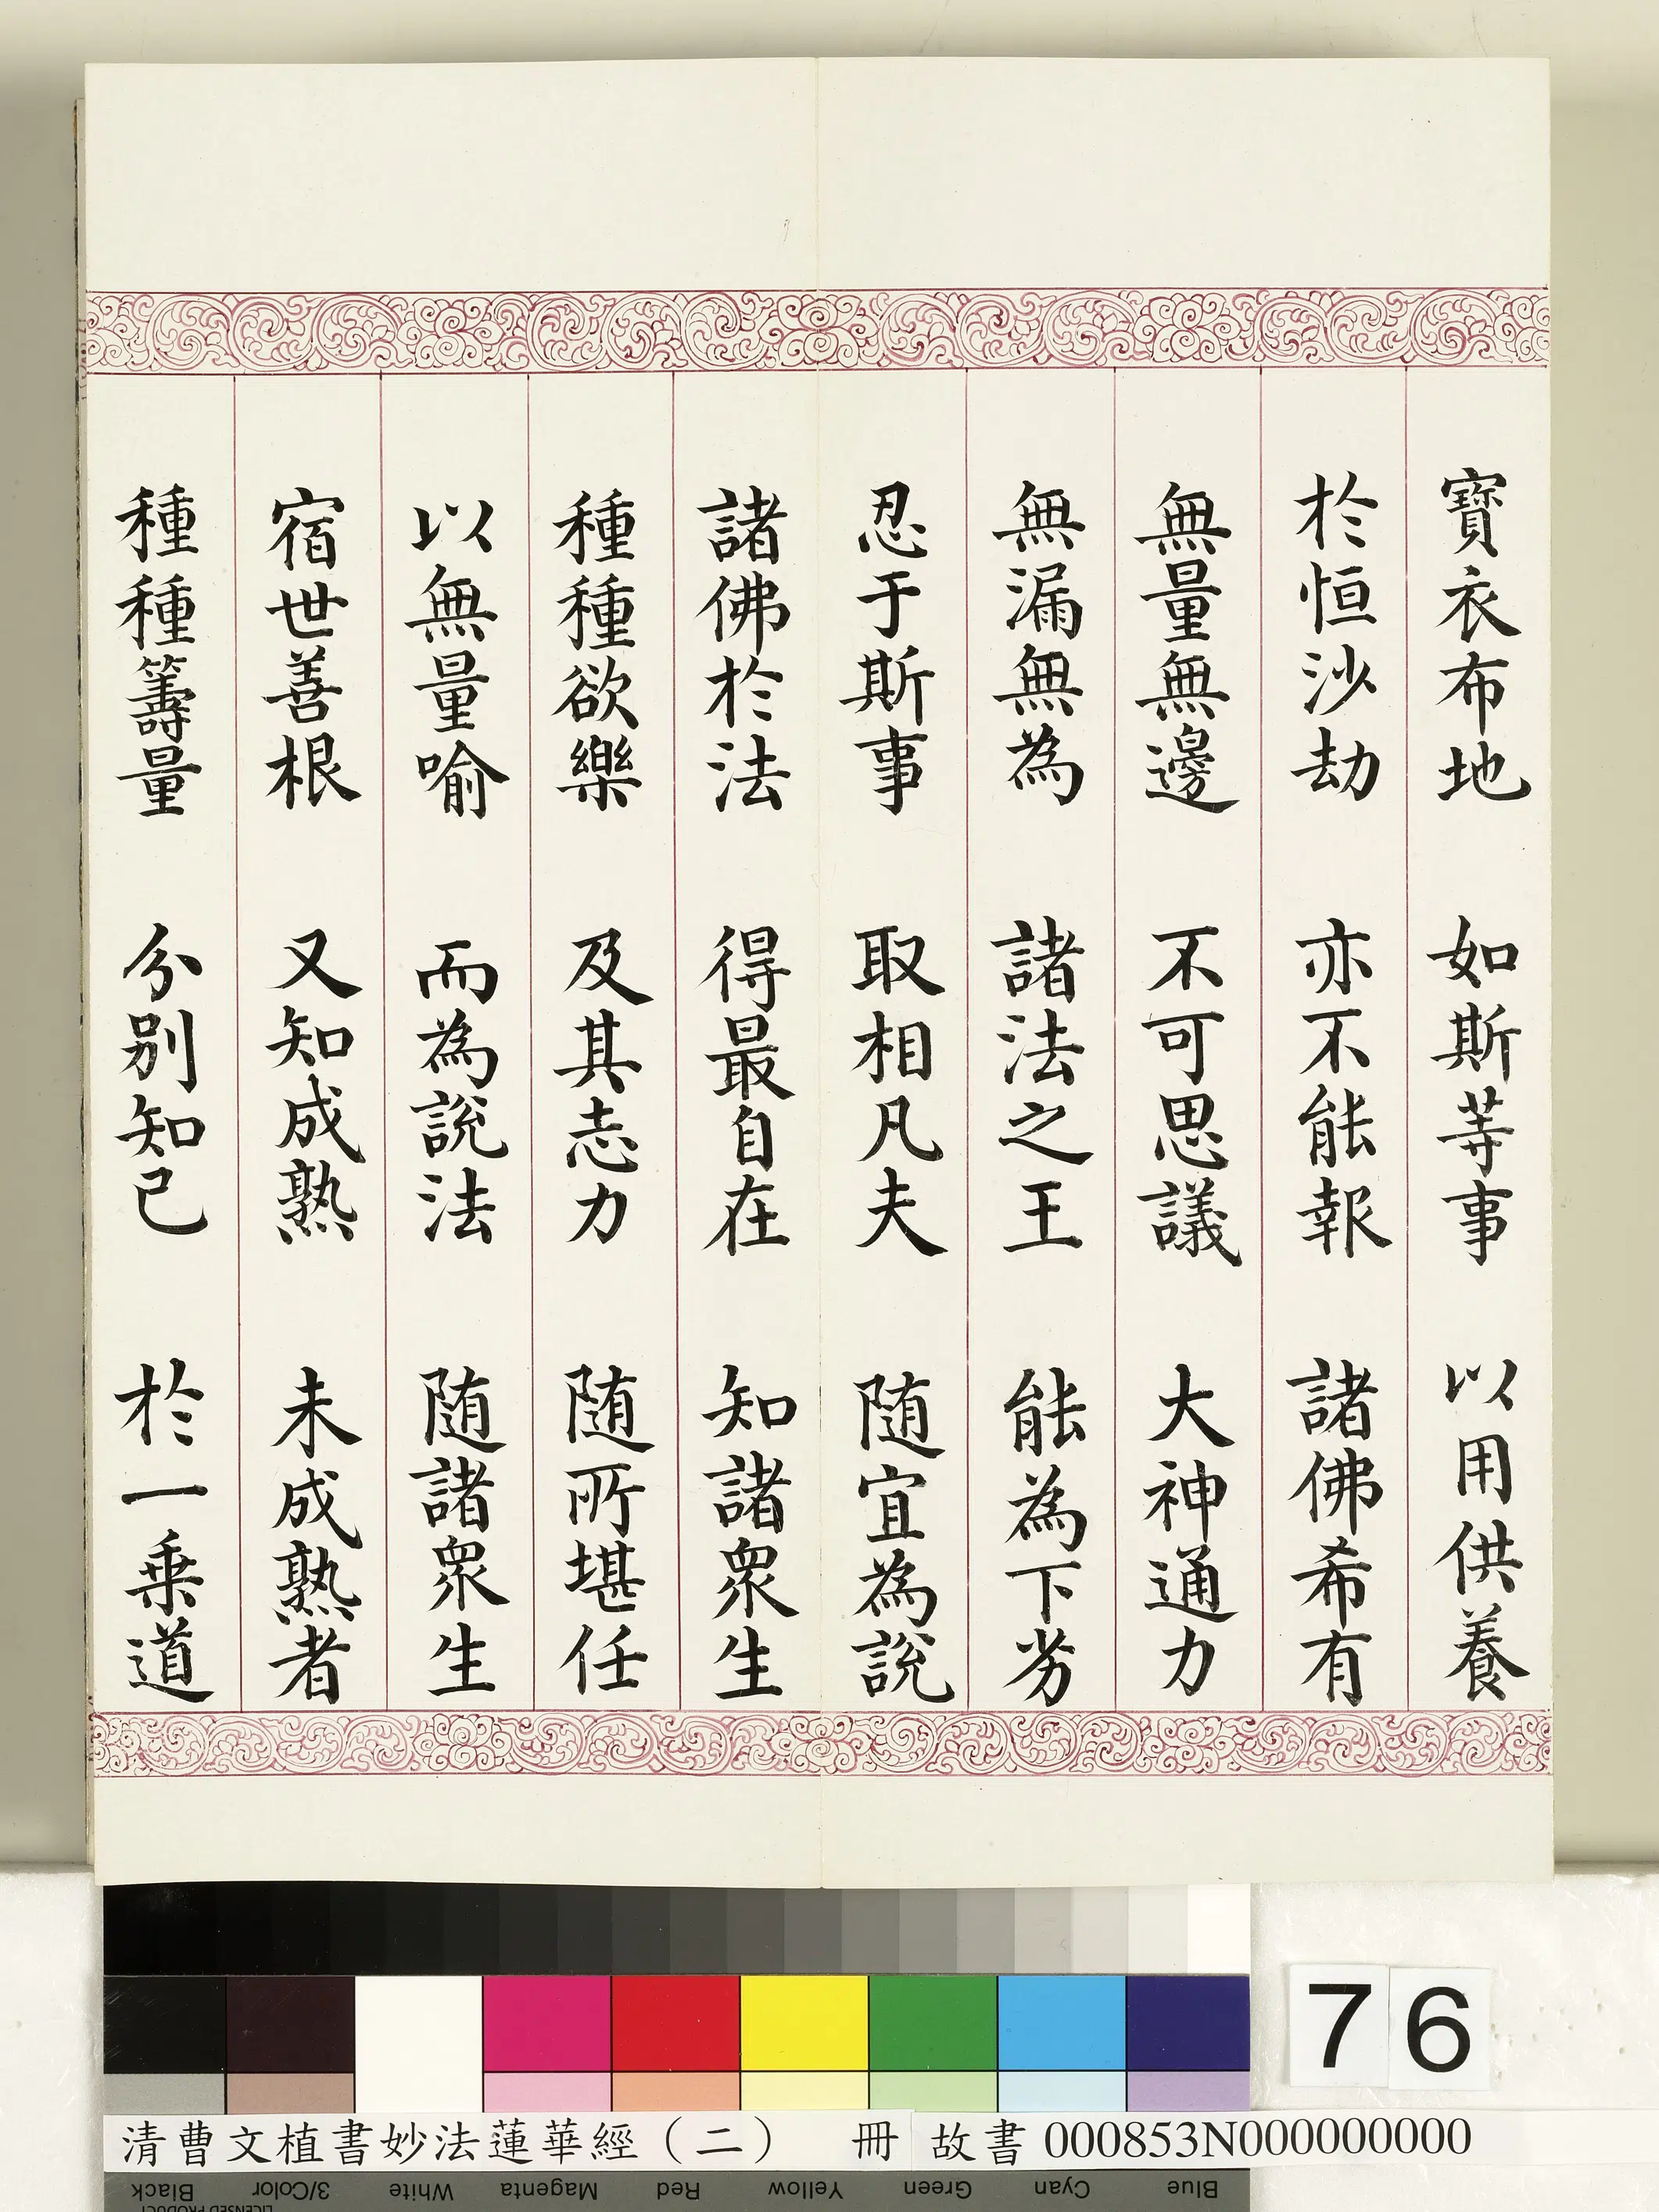 寶衣布地 如斯等事 以用供養
於恒沙劫 亦不能報 諸佛希有
無量無邊 不可思議 大神通力
無漏無為 諸法之王 能為下劣
忍于斯事 取相凡夫 随宜為說
諸佛於法 得最自在 知諸眾生
種種欲樂 及其志力 随所堪任
以無量喻 而為說法 随諸眾生
宿世善根 又知成熟 未成熟者
種種籌量 分别知已 於一乗道
76
清曹文植書妙法蓮華經（二） 冊 故書 000853N000000000
Black 3/Color White Magenta Red Yellow Green Cyan Blue
LICENSED PRODUCT